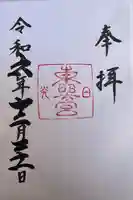 奉拝
東照宮
日光
令和六年十二月二十一日